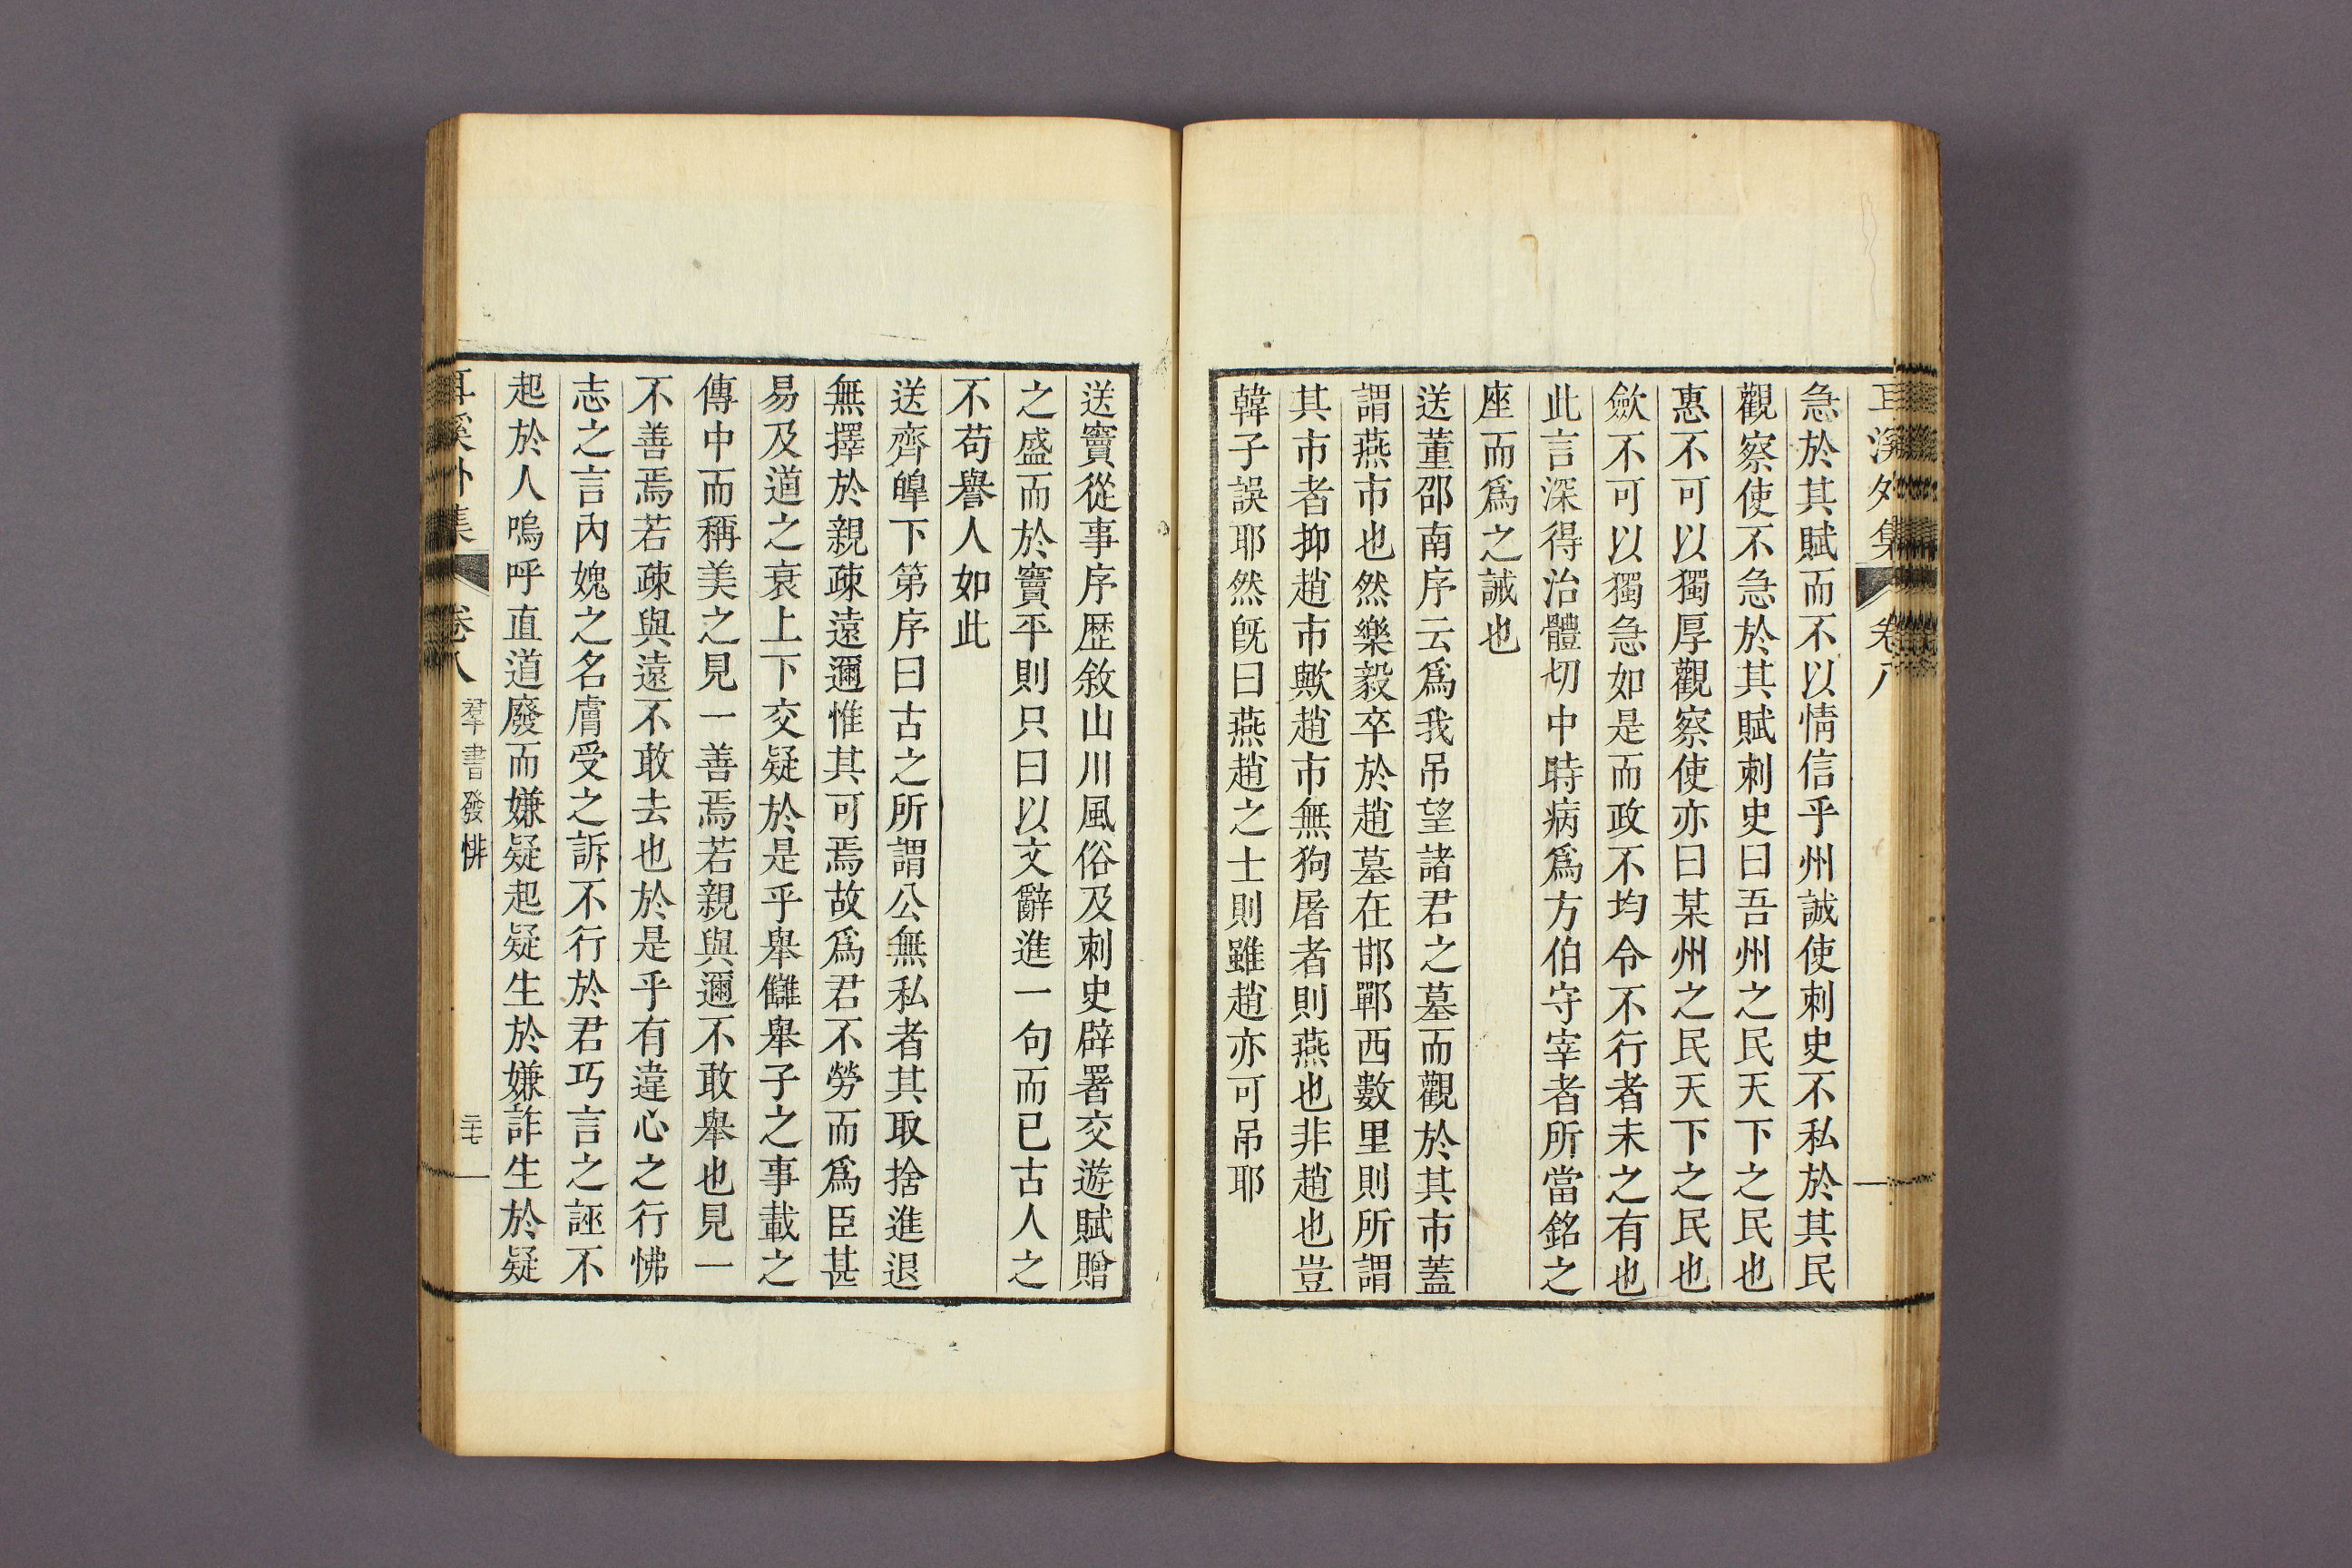 急於其賦而不以情信乎州誠使刺史不私於其民
觀察使不急於其賦刺史曰吾州之民天下之民也
惠不可以獨厚觀察使亦曰某州之民天下之民也
歛不可以獨急如是而政不均令不行者未之有也
此言深得治體切中時病爲方伯守宰者所當銘之
座而爲之誡也
送董邵南序云爲我吊望諸君之墓而觀於其市蓋
謂燕市也然樂毅卒於趙墓在邯鄲西數里則所謂
其市者抑趙市歟趙市無狗屠者則燕也非趙也豈
韓子誤耶然旣曰燕趙之士則雖趙亦可吊耶
送竇從事序歷敘山川風俗及刺史辟署交遊賦贈
之盛而於竇平則只曰以文辭進一句而已古人之
不苟譽人如此
送齊皡下第序曰古之所謂公無私者其取捨進退
無擇於親疎遠邇惟其可焉故爲君不勞而爲臣甚
易及道之衰上下交疑於是乎舉讎舉子之事載之
傳中而稱美之見一善焉若親與邇不敢舉也見一
不善焉若疎與遠不敢去也於是乎有違心之行怫
志之言內媿之名膚受之訴不行於君巧言之誣不
起於人嗚呼直道廢而嫌疑起疑生於嫌詐生於疑
集 卷八 羣書發悱 二十七